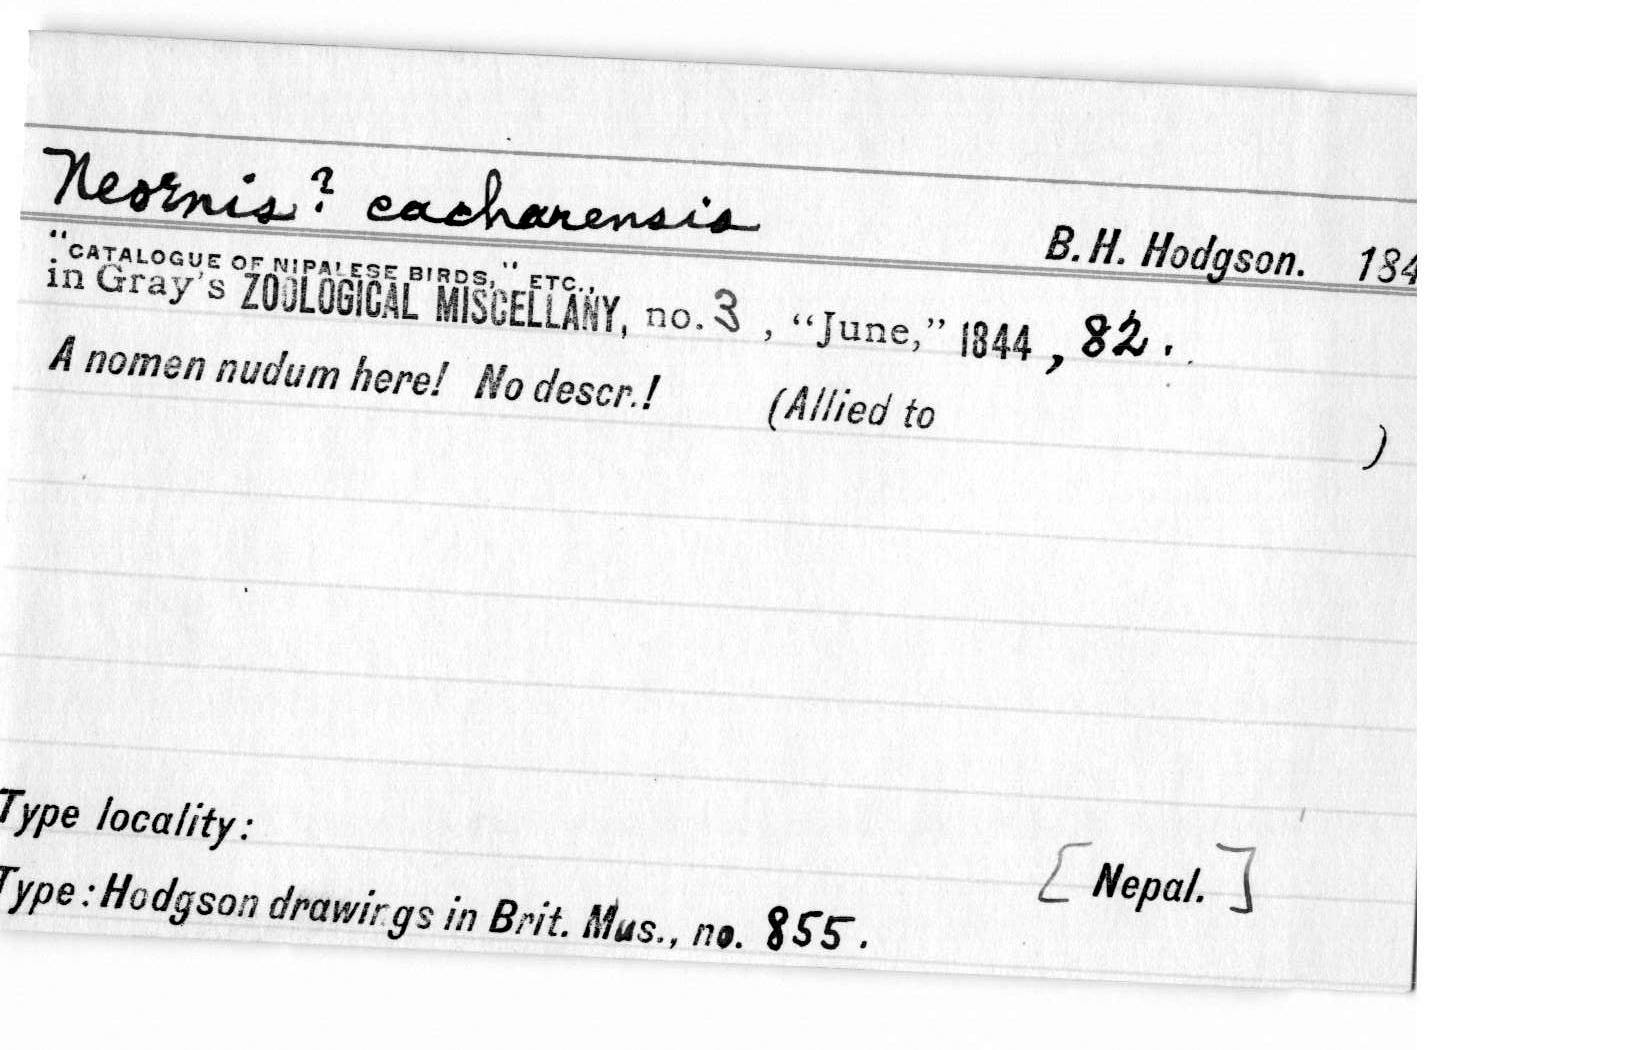 Neornis? cacharensis
B. H. Hodgson. 184
"CATALOGUE OF NIPALESE BIRDS," ETC.,
in Gray's ZOOLOGICAL MISCELLANY, no. 3, "June," 1844, 82.
A nomen nudum here! No descr.! (Allied to )
Type locality:
[Nepal.]
Type: Hodgson drawings in Brit. Mus., no. 855.